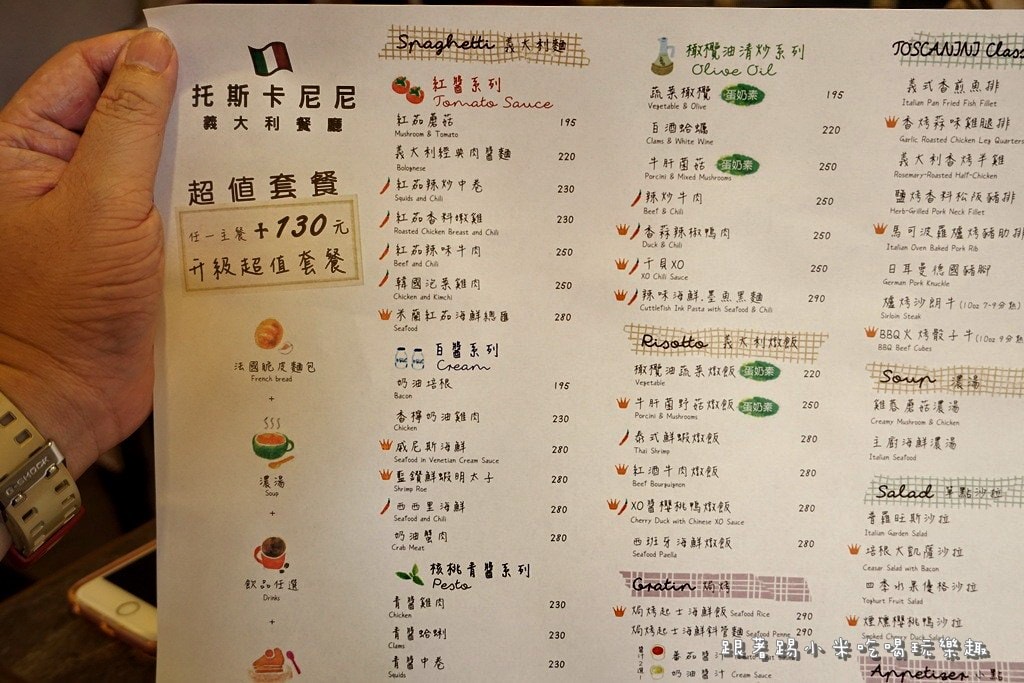 托斯卡尼尼
義大利餐廳
超值套餐
任一主餐+130元
升級超值套餐
法國脆皮麵包
French bread
+
濃湯
Soup
+
飲品任選
Drinks
+
G-SHOCK
Spaghetti 義大利麵
紅醬系列
Tomato Sauce
紅茄蘑菇 195
Mushroom & Tomato
義大利經典肉醬麵 220
Bolognese
紅茄辣炒中卷 230
Squids and Chili
紅茄香料嫩雞 230
Roasted Chicken Breast and Chili
紅茄辣味牛肉 250
Beef and Chili
韓國泡菜雞肉 250
Chicken and Kimchi
米蘭紅茄海鮮總匯 280
Seafood
白醬系列
Cream
奶油培根 195
Bacon
香檸奶油雞肉 230
Chicken
威尼斯海鮮 280
Seafood in Venetian Cream Sauce
藍鑽鮮蝦明太子 280
Shrimp Roe
西西里海鮮 280
Seafood and Chili
奶油蟹肉 280
Crab Meat
核桃青醬系列
Pesto
青醬雞肉 230
Chicken
青醬蛤蜊 230
Clams
青醬中卷 230
Squids
橄欖油清炒系列
Olive Oil
蔬菜橄欖 蛋奶素 195
Vegetable & Olive
白酒蛤蠣 220
Clams & White Wine
牛肝菌菇 蛋奶素 250
Porcini & Mixed Mushrooms
辣炒牛肉 250
Beef & Chili
香蒜辣椒鴨肉 250
Duck & Chili
干貝XO 250
XO Chili Sauce
辣味海鮮.墨魚黑麵 290
Cuttlefish Ink Pasta with Seafood & Chili
Risotto 義大利燉飯
橄欖油蔬菜燉飯 蛋奶素 220
Vegetable
牛肝菌野菇燉飯 蛋奶素 250
Porcini & Mushrooms
泰式鮮蝦燉飯 280
Thai Shrimp
紅酒牛肉燉飯 280
Beef Bourguignon
XO醬櫻桃鴨燉飯 280
Cherry Duck with Chinese XO Sauce
西班牙海鮮燉飯 280
Seafood Paella
Gratin 焗烤
焗烤起士海鮮飯 Seafood Rice 290
焗烤起士海鮮斜管麵 Seafood Penne 290
醬汁2選1
番茄醬汁
奶油醬汁 Cream Sauce
TOSCANINI Class
義式香煎魚排
Italian Pan Fried Fish Fillet
香烤蒜味雞腿排
Garlic Roasted Chicken Leg Quarters
義大利香烤半雞
Rosemary-Roasted Half-Chicken
鹽烤香料松阪豬排
Herb-Grilled Pork Neck Fillet
馬可波羅爐烤豬肋排
Italian Oven Baked Pork Rib
日耳曼德國豬腳
German Pork Knuckle
爐烤沙朗牛(10oz 7-9分熟)
Sirloin Steak
BBQ火烤骰子牛(10oz 9分熟)
BBQ Beef Cubes
Soup 濃湯
雞蓉蘑菇濃湯
Creamy Mushroom & Chicken
主廚海鮮濃湯
Italian Seafood
Salad 單點沙拉
普羅旺斯沙拉
Italian Garden Salad
培根大凱薩沙拉
Ceasar Salad with Bacon
四季水果優格沙拉
Yoghurt Fruit Salad
煙燻櫻桃鴨沙拉
Smoked Cherry Duck Salad
Appetiser 小點
跟著踢小米吃喝玩樂趣